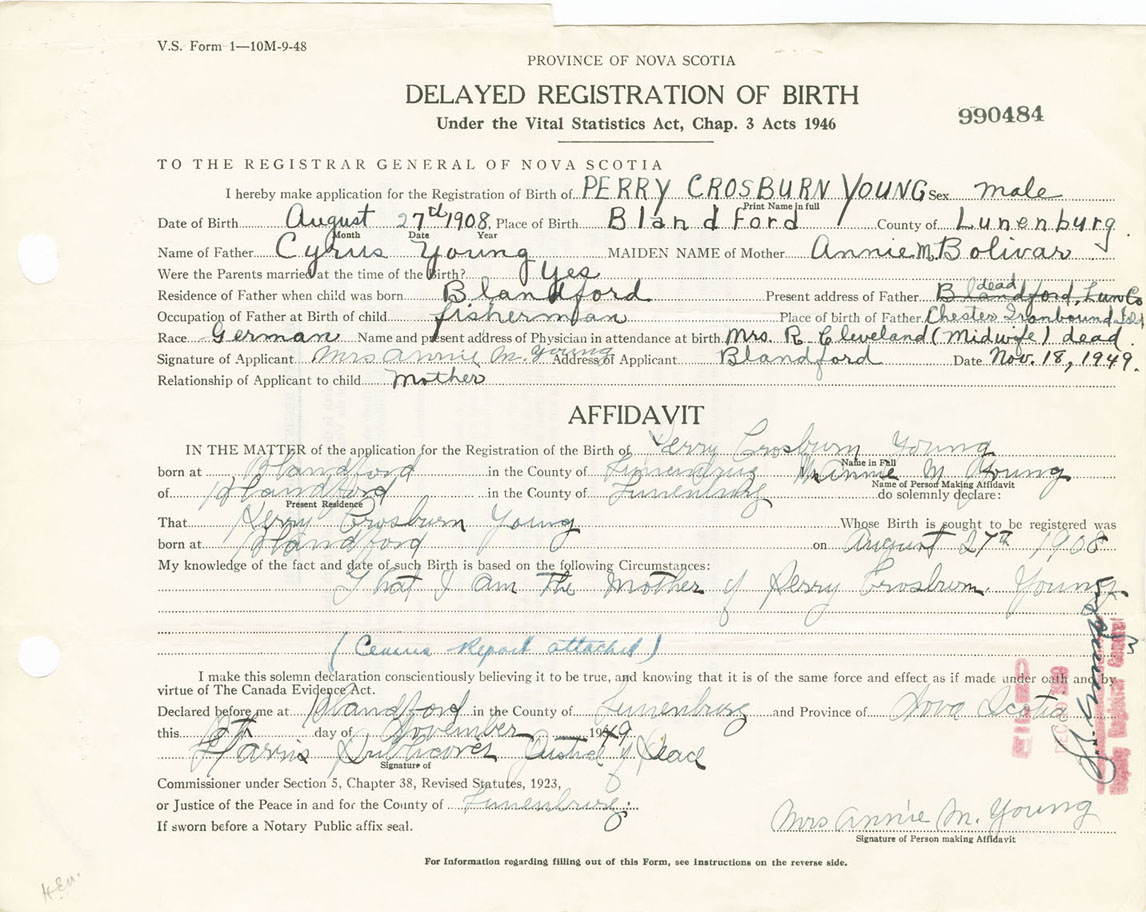 V.S. Form 1—10M-9-48
PROVINCE OF NOVA SCOTIA
DELAYED REGISTRATION OF BIRTH
990484
Under the Vital Statistics Act, Chap. 3 Acts 1946
TO THE REGISTRAR GENERAL OF NOVA SCOTIA
I hereby make application for the Registration of Birth of PERRY CROSBURN YOUNG Sex male
Print Name in full
Date of Birth August 27th 1908, Place of Birth Blandford County of Lunenburg.
Month Date Year
Name of Father Cyrus Young MAIDEN NAME of Mother Annie M. Bolivar
Were the Parents married at the time of the Birth? Yes
dead
Residence of Father when child was born Blandford Present address of Father Blandford, Lun Co
Occupation of Father at Birth of child fisherman Place of birth of Father Chester Ironbound
Race German Name and present address of Physician in attendance at birth Mrs. R. Cleveland (Midwife) dead.
Signature of Applicant Mrs Annie M. Young Address of Applicant Blandford Date Nov. 18, 1949.
Relationship of Applicant to child Mother
AFFIDAVIT
IN THE MATTER of the application for the Registration of the Birth of Perry Crosburn Young
Name in Full
born at Blandford in the County of Lunenburg Mrs Annie M. Young
Name of Person Making Affidavit
of Blandford in the County of Lunenburg do solemnly declare:
Present Residence
That Perry Crosburn Young Whose Birth is sought to be registered was
born at Blandford on August 27th 1908
My knowledge of the fact and date of such Birth is based on the following Circumstances:
That I am the Mother of Perry Crosburn Young
(Census Report attached)
I make this solemn declaration conscientiously believing it to be true, and knowing that it is of the same force and effect as if made under oath and by
virtue of The Canada Evidence Act.
Declared before me at Blandford in the County of Lunenburg and Province of Nova Scotia
this day of November 1949
Harris Publicover Justice of Peace
Signature of
Commissioner under Section 5, Chapter 38, Revised Statutes, 1923,
or Justice of the Peace in and for the County of Lunenburg
If sworn before a Notary Public affix seal.
Mrs Annie M. Young
Signature of Person making Affidavit
For Information regarding filling out of this Form, see instructions on the reverse side.